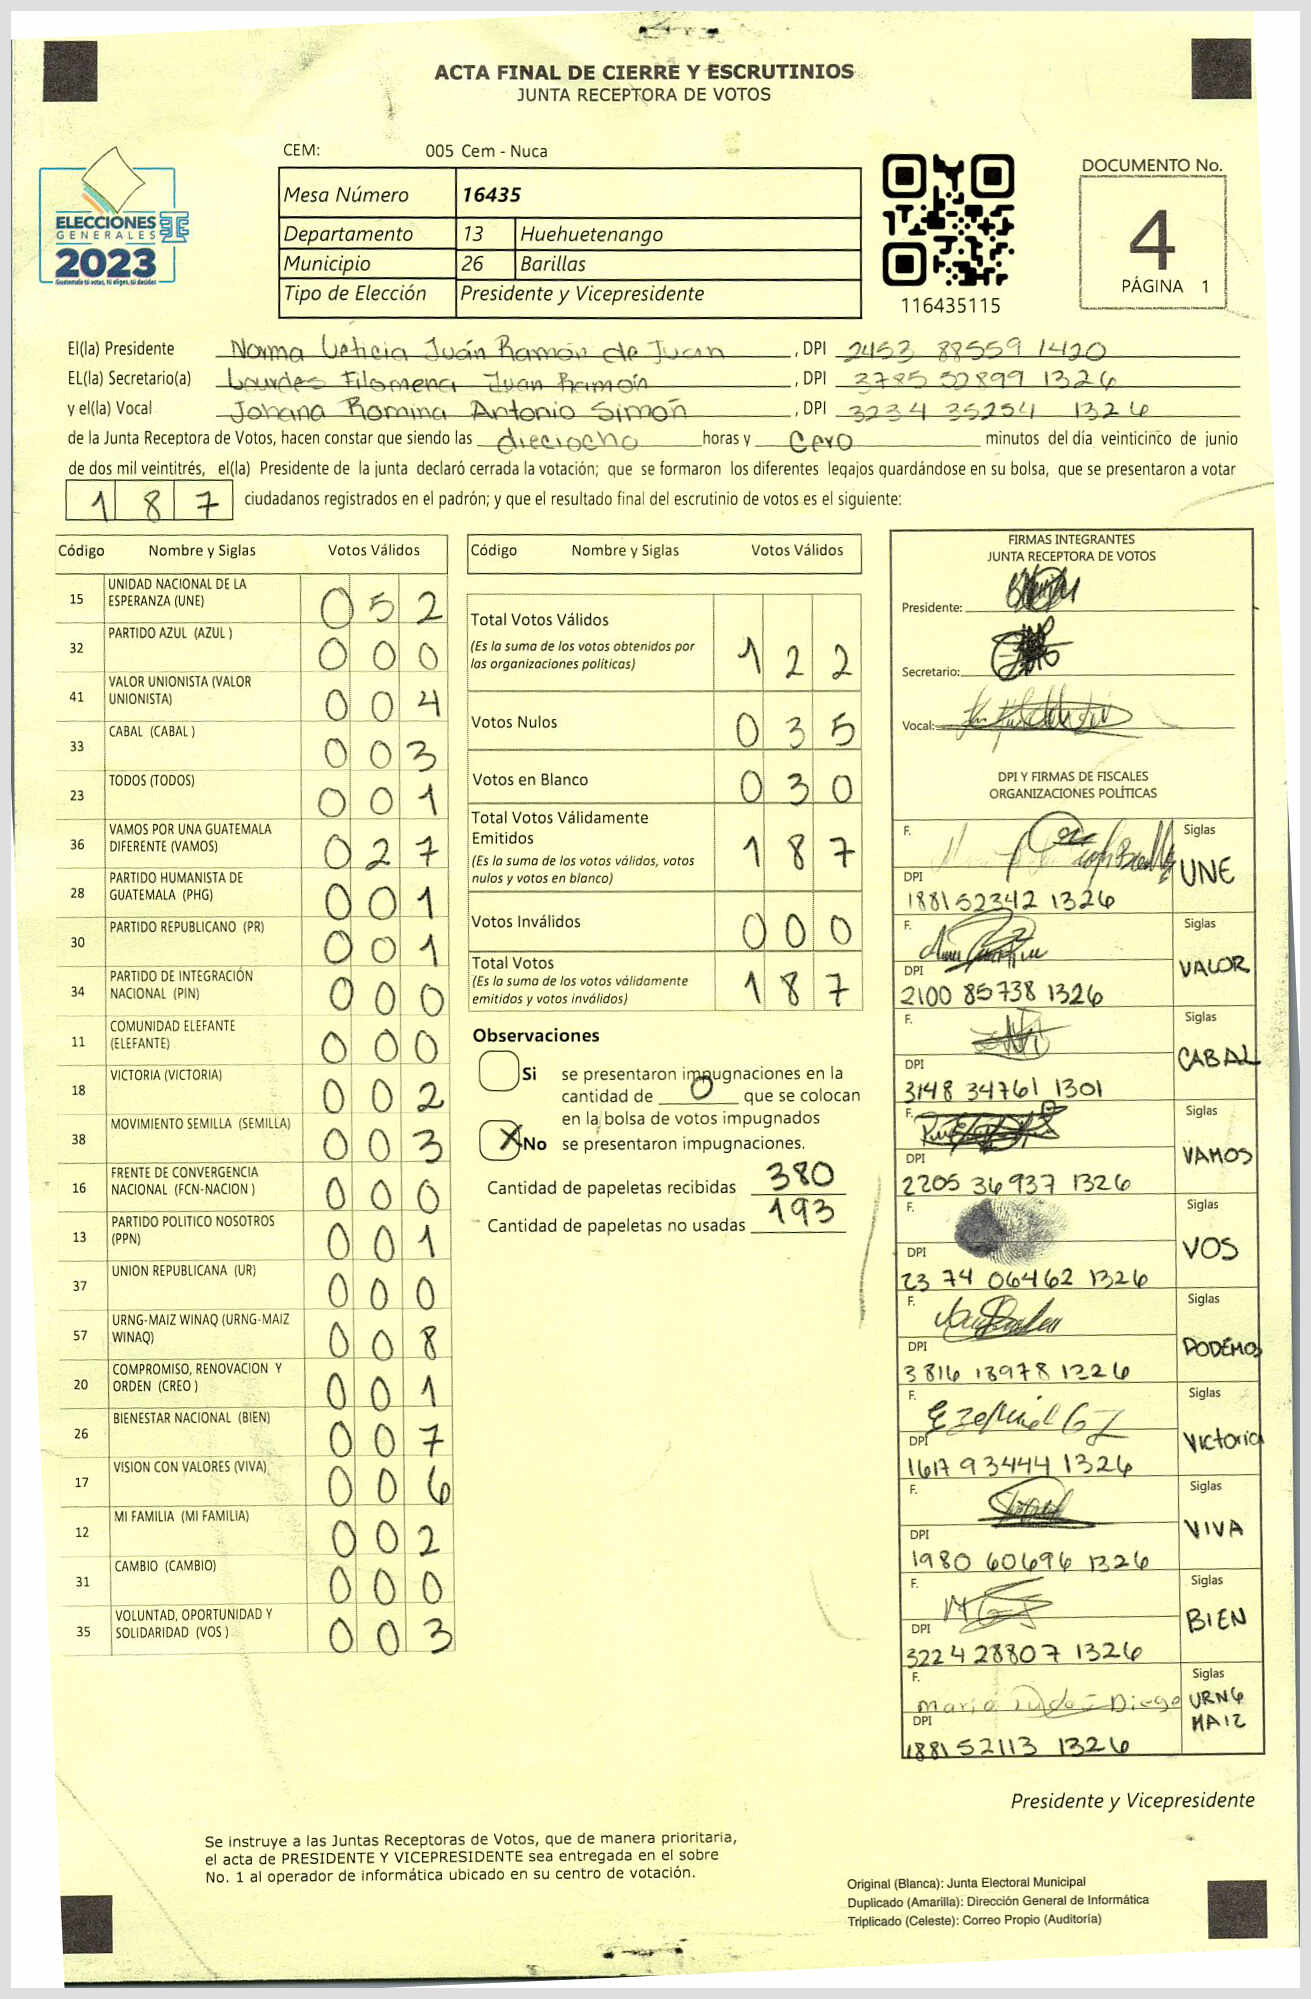 ACTA FINAL DE CIERRE Y ESCRUTINIOS
JUNTA RECEPTORA DE VOTOS
CEM: 005 Cem - Nuca
ELECCIONES
GENERALES
2023
Guatemala tú votas, tú eliges, tú decides
Mesa Número 16435
Departamento 13 Huehuetenango
Municipio 26 Barillas
Tipo de Elección Presidente y Vicepresidente
116435115
DOCUMENTO No.
4
PÁGINA 1
El(la) Presidente Norma Leticia Juán Ramón de Juan , DPI 2453 88559 1420
EL(la) Secretario(a) Lourdes Filomena Juan Ramón , DPI 3785 52899 1326
y el(la) Vocal Johana Romina Antonio Simón , DPI 3234 35254 1326
de la Junta Receptora de Votos, hacen constar que siendo las dieciocho horas y Cero minutos del día veinticinco de junio
de dos mil veintitrés, el(la) Presidente de la junta declaró cerrada la votación; que se formaron los diferentes legajos guardándose en su bolsa, que se presentaron a votar
187 ciudadanos registrados en el padrón; y que el resultado final del escrutinio de votos es el siguiente:
Código Nombre y Siglas Votos Válidos
15 UNIDAD NACIONAL DE LA ESPERANZA (UNE) 0 5 2
32 PARTIDO AZUL (AZUL ) 0 0 0
41 VALOR UNIONISTA (VALOR UNIONISTA) 0 0 4
33 CABAL (CABAL ) 0 0 3
23 TODOS (TODOS) 0 0 1
36 VAMOS POR UNA GUATEMALA DIFERENTE (VAMOS) 0 2 7
28 PARTIDO HUMANISTA DE GUATEMALA (PHG) 0 0 1
30 PARTIDO REPUBLICANO (PR) 0 0 1
34 PARTIDO DE INTEGRACIÓN NACIONAL (PIN) 0 0 0
11 COMUNIDAD ELEFANTE (ELEFANTE) 0 0 0
18 VICTORIA (VICTORIA) 0 0 2
38 MOVIMIENTO SEMILLA (SEMILLA) 0 0 3
16 FRENTE DE CONVERGENCIA NACIONAL (FCN-NACION ) 0 0 0
13 PARTIDO POLITICO NOSOTROS (PPN) 0 0 1
37 UNION REPUBLICANA (UR) 0 0 0
57 URNG-MAIZ WINAQ (URNG-MAIZ WINAQ) 0 0 8
20 COMPROMISO, RENOVACION Y ORDEN (CREO ) 0 0 1
26 BIENESTAR NACIONAL (BIEN) 0 0 7
17 VISION CON VALORES (VIVA) 0 0 6
12 MI FAMILIA (MI FAMILIA) 0 0 2
31 CAMBIO (CAMBIO) 0 0 0
35 VOLUNTAD, OPORTUNIDAD Y SOLIDARIDAD (VOS ) 0 0 3
Código Nombre y Siglas Votos Válidos
Total Votos Válidos 1 2 2
(Es la suma de los votos obtenidos por
las organizaciones políticas)
Votos Nulos 0 3 5
Votos en Blanco 0 3 0
Total Votos Válidamente
Emitidos 1 8 7
(Es la suma de los votos válidos, votos
nulos y votos en blanco)
Votos Inválidos 0 0 0
Total Votos 1 8 7
(Es la suma de los votos válidamente
emitidos y votos inválidos)
Observaciones
Si se presentaron impugnaciones en la
cantidad de 0 que se colocan
en la bolsa de votos impugnados
X No se presentaron impugnaciones.
Cantidad de papeletas recibidas 380
Cantidad de papeletas no usadas 193
FIRMAS INTEGRANTES
JUNTA RECEPTORA DE VOTOS
Presidente:
Secretario:
Vocal:
DPI Y FIRMAS DE FISCALES
ORGANIZACIONES POLÍTICAS
F. Siglas
UNE
DPI
1881 52342 1326
F. Siglas
VALOR
DPI
2100 85738 1326
F. Siglas
CABAL
DPI
3148 34761 1301
F. Siglas
VAMOS
DPI
2205 36937 1326
F. Siglas
VOS
DPI
2374 06462 1326
F. Siglas
PODEMOS
DPI
3816 13978 1326
F. Ezequiel Siglas
Victoria
DPI
1617 93444 1326
F. Siglas
VIVA
DPI
1980 60696 1326
F. Siglas
BIEN
DPI
3224 28807 1326
F. Siglas
Diego URNG
MAIZ
DPI
1881 52113 1326
Presidente y Vicepresidente
Se instruye a las Juntas Receptoras de Votos, que de manera prioritaria,
el acta de PRESIDENTE Y VICEPRESIDENTE sea entregada en el sobre
No. 1 al operador de informática ubicado en su centro de votación.
Original (Blanca): Junta Electoral Municipal
Duplicado (Amarilla): Dirección General de Informática
Triplicado (Celeste): Correo Propio (Auditoría)